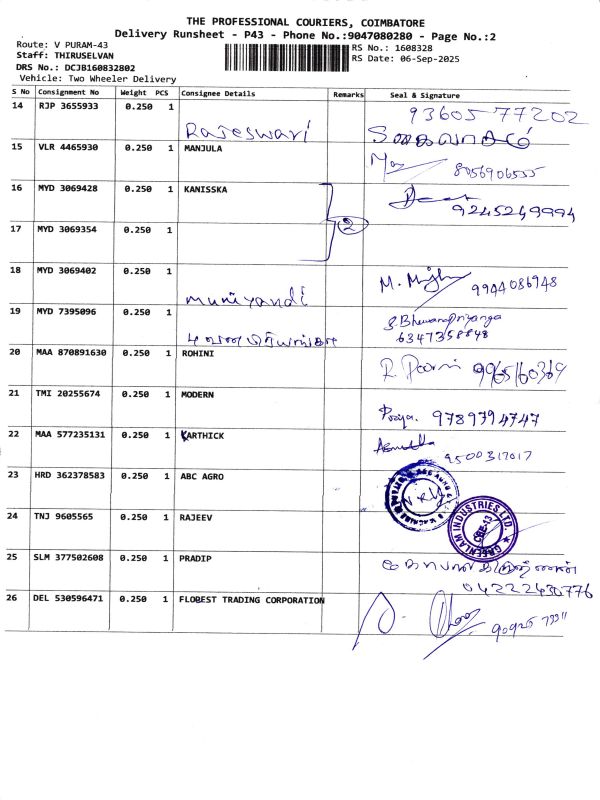 THE PROFESSIONAL COURIERS, COIMBATORE
Delivery Runsheet - P43 - Phone No.:9047080280 - Page No.:2
Route: V PURAM-43
RS No.: 1608328
Staff: THIRUSELVAN
RS Date: 06-Sep-2025
DRS No.: DCJB160832802
Vehicle: Two Wheeler Delivery
S No Consignment No Weight PCS Consignee Details Remarks Seal & Signature
14 RJP 3655933 0.250 1 93605 77202
Rajeswari
15 VLR 4465930 0.250 1 MANJULA
8056906555
16 MYD 3069428 0.250 1 KANISSKA
9245249994
17 MYD 3069354 0.250 1 2
18 MYD 3069402 0.250 1
Muniyandi M. 9944086948
19 MYD 7395096 0.250 1 S.Bhuvanapriyanga
6347358848
20 MAA 870891630 0.250 1 ROHINI
R. 9965160369
21 TMI 20255674 0.250 1 MODERN
Pooja. 9789794747
22 MAA 577235131 0.250 1 KARTHICK
9500317017
23 HRD 362378583 0.250 1 ABC AGRO
24 TNJ 9605565 0.250 1 RAJEEV
GREENLAM INDUSTRIES LTD.
CBE-13
25 SLM 377502608 0.250 1 PRADIP
04222430776
26 DEL 530596471 0.250 1 FLOBEST TRADING CORPORATION